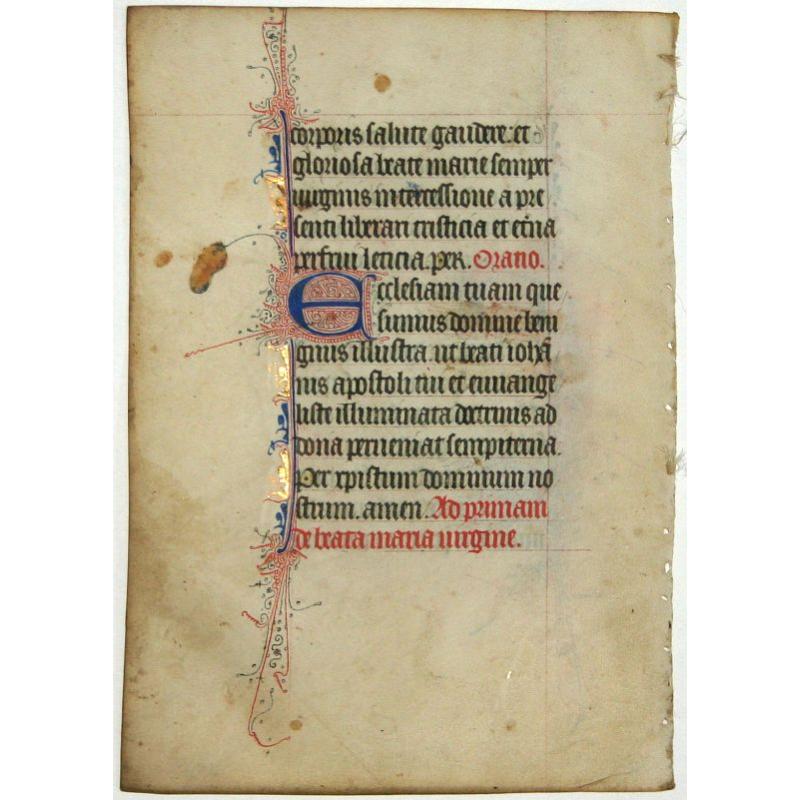 corporis salute gaudere: et
gloriosa beate marie semper
uirginis intercessione a pre
senti liberari tristicia et et̄na
perfrui leticia. per. Oratio.
Ecclesiam tuam que
sumus domine beni
gnus illustra. ut beati ioha̅
nis apostoli tui et euuange
liste illuminata doctrinis ad
dona perueniat sempiterna.
Per xpistum dominum no
strum. amen. Ad primam
de beata maria uirgine.